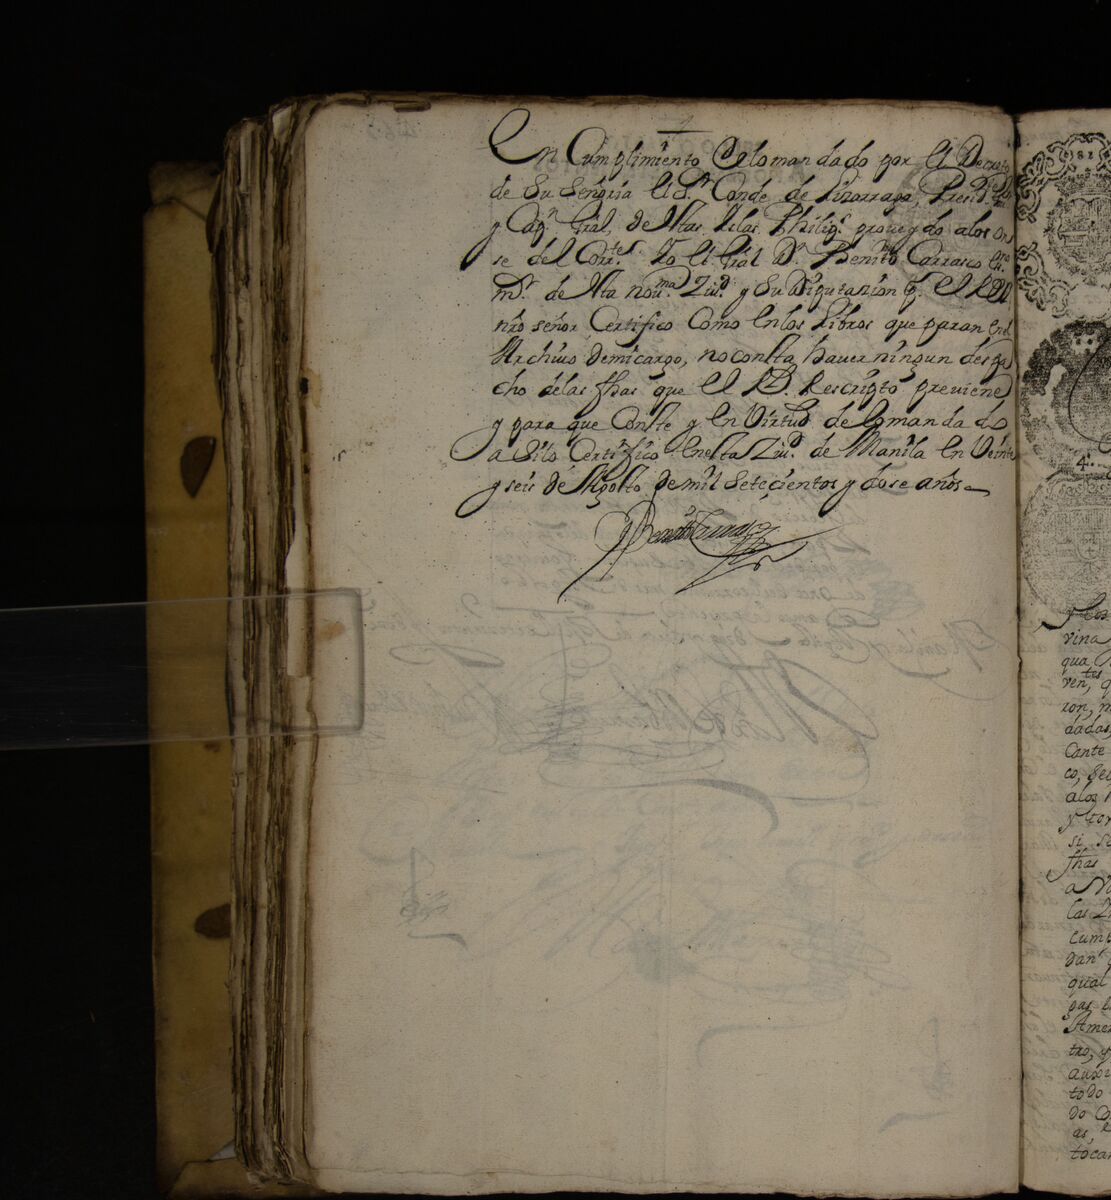 En Cumplimiento de lo mandado por el Decreto
de Su Señoria el S.r Conde de Lizarraga, Press.te Gov.r
y Cap.n Gral, de estas Islas Philip.s proveydo a los onse
se del Corr.te Yo el Gral D.n Benito Carrasco
m.r de esta nou.ma Ziu.d y su Diputazion q. el Rey
nrõ señor Certifico Como en los libros que paran en el
Archivo de mi cargo, no consta haver ningun despa
cho de las fhas que el Rl. Rescripto previene
y para que Conste y en Virtud de lo mandado
asi lo Certifico en esta Ziu.d de Manila en Veinte
y seis de Agosto de mil setecientos y dose años
Benito Carrasco
4.
y los
vina
qua
ven.tes, q
ron, m
dadas,
Cante
co, sei
a los
y tor
si, se
fhas
a
las
cump
dan
qual
gas
Amer
tro, y
auxi
todo
do Co
as,
tocan